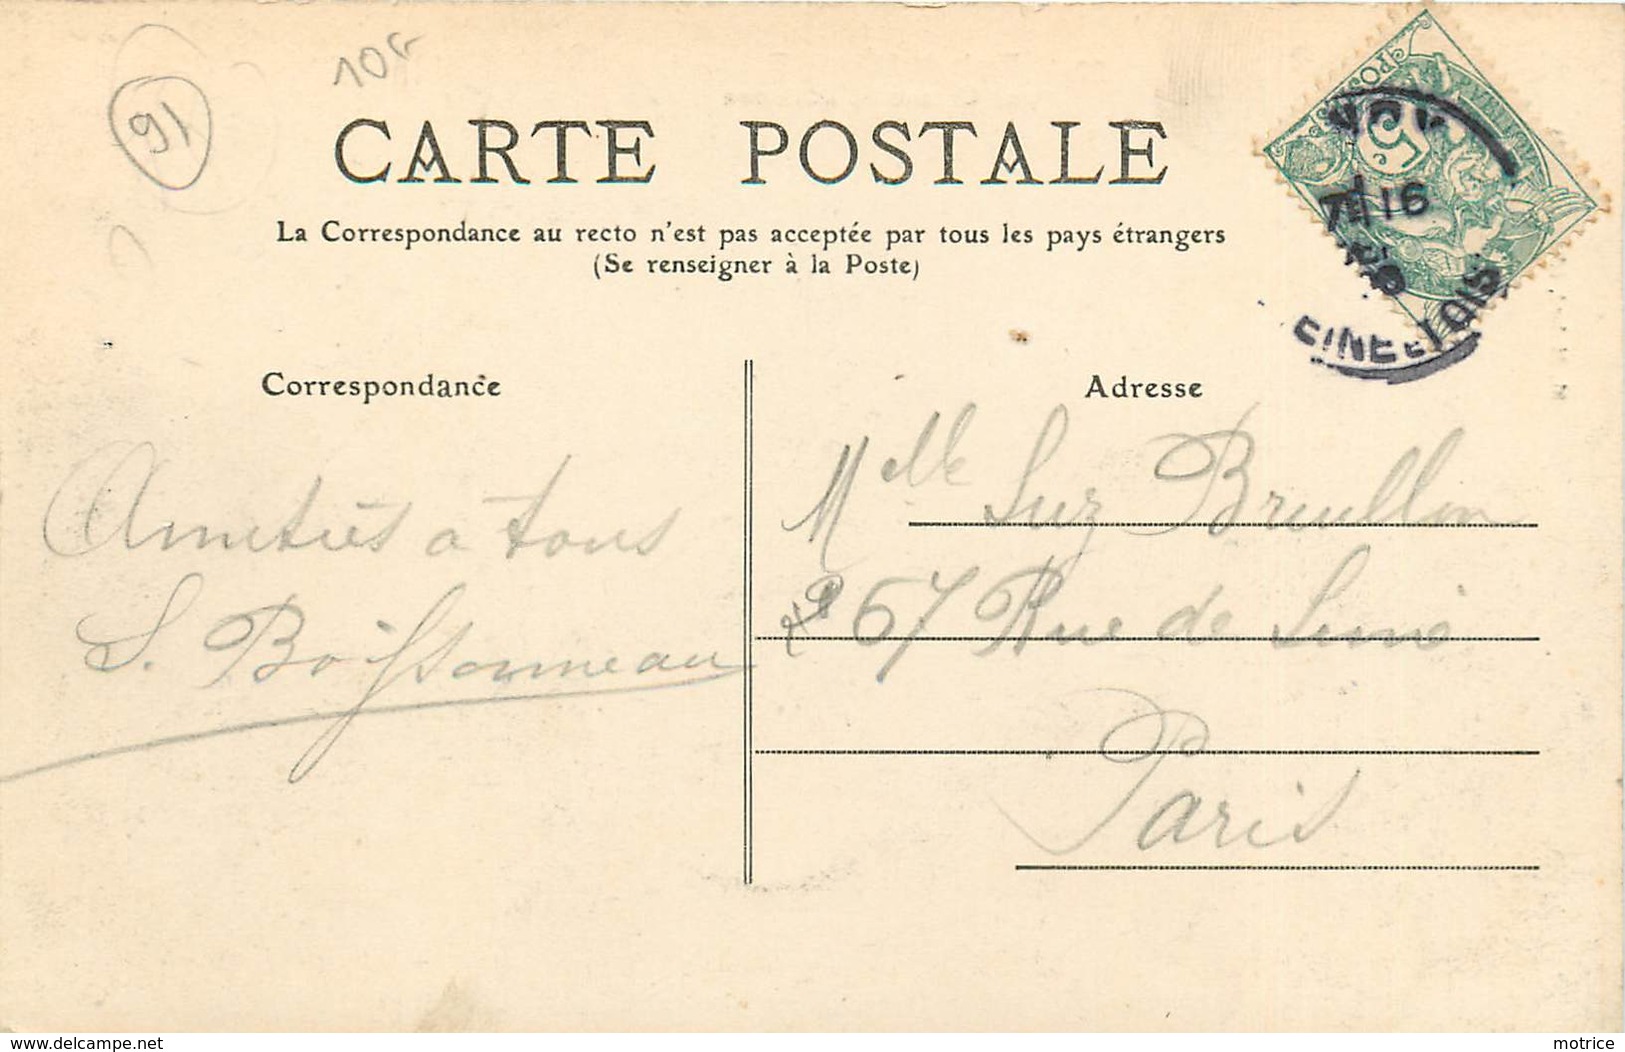 91
10G
CARTE POSTALE
La Correspondance au recto n'est pas acceptée par tous les pays étrangers
(Se renseigner à la Poste)
5
16
EINE ET OIS
Correspondance
Adresse
Amitiés à tous
S. Boissonneau
Mlle Suz Brullon
67 Rue de
Paris
www.delcampe.net
motrice